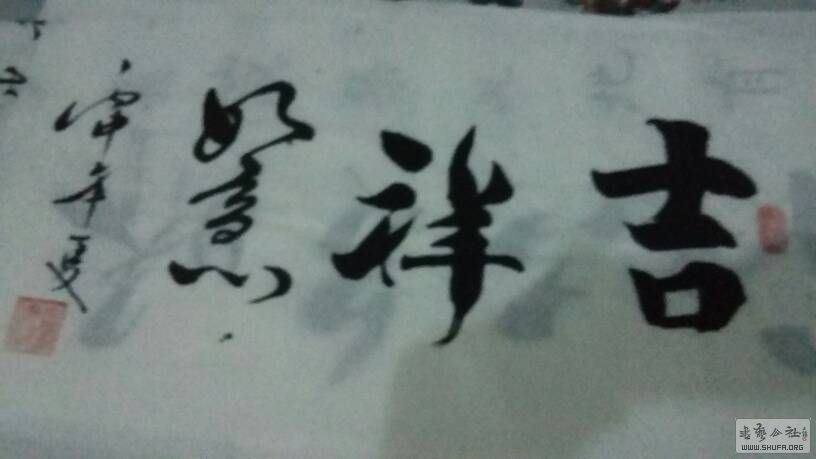 吉祥如意
年夏
书艺公社
WWW.SHUFA.ORG